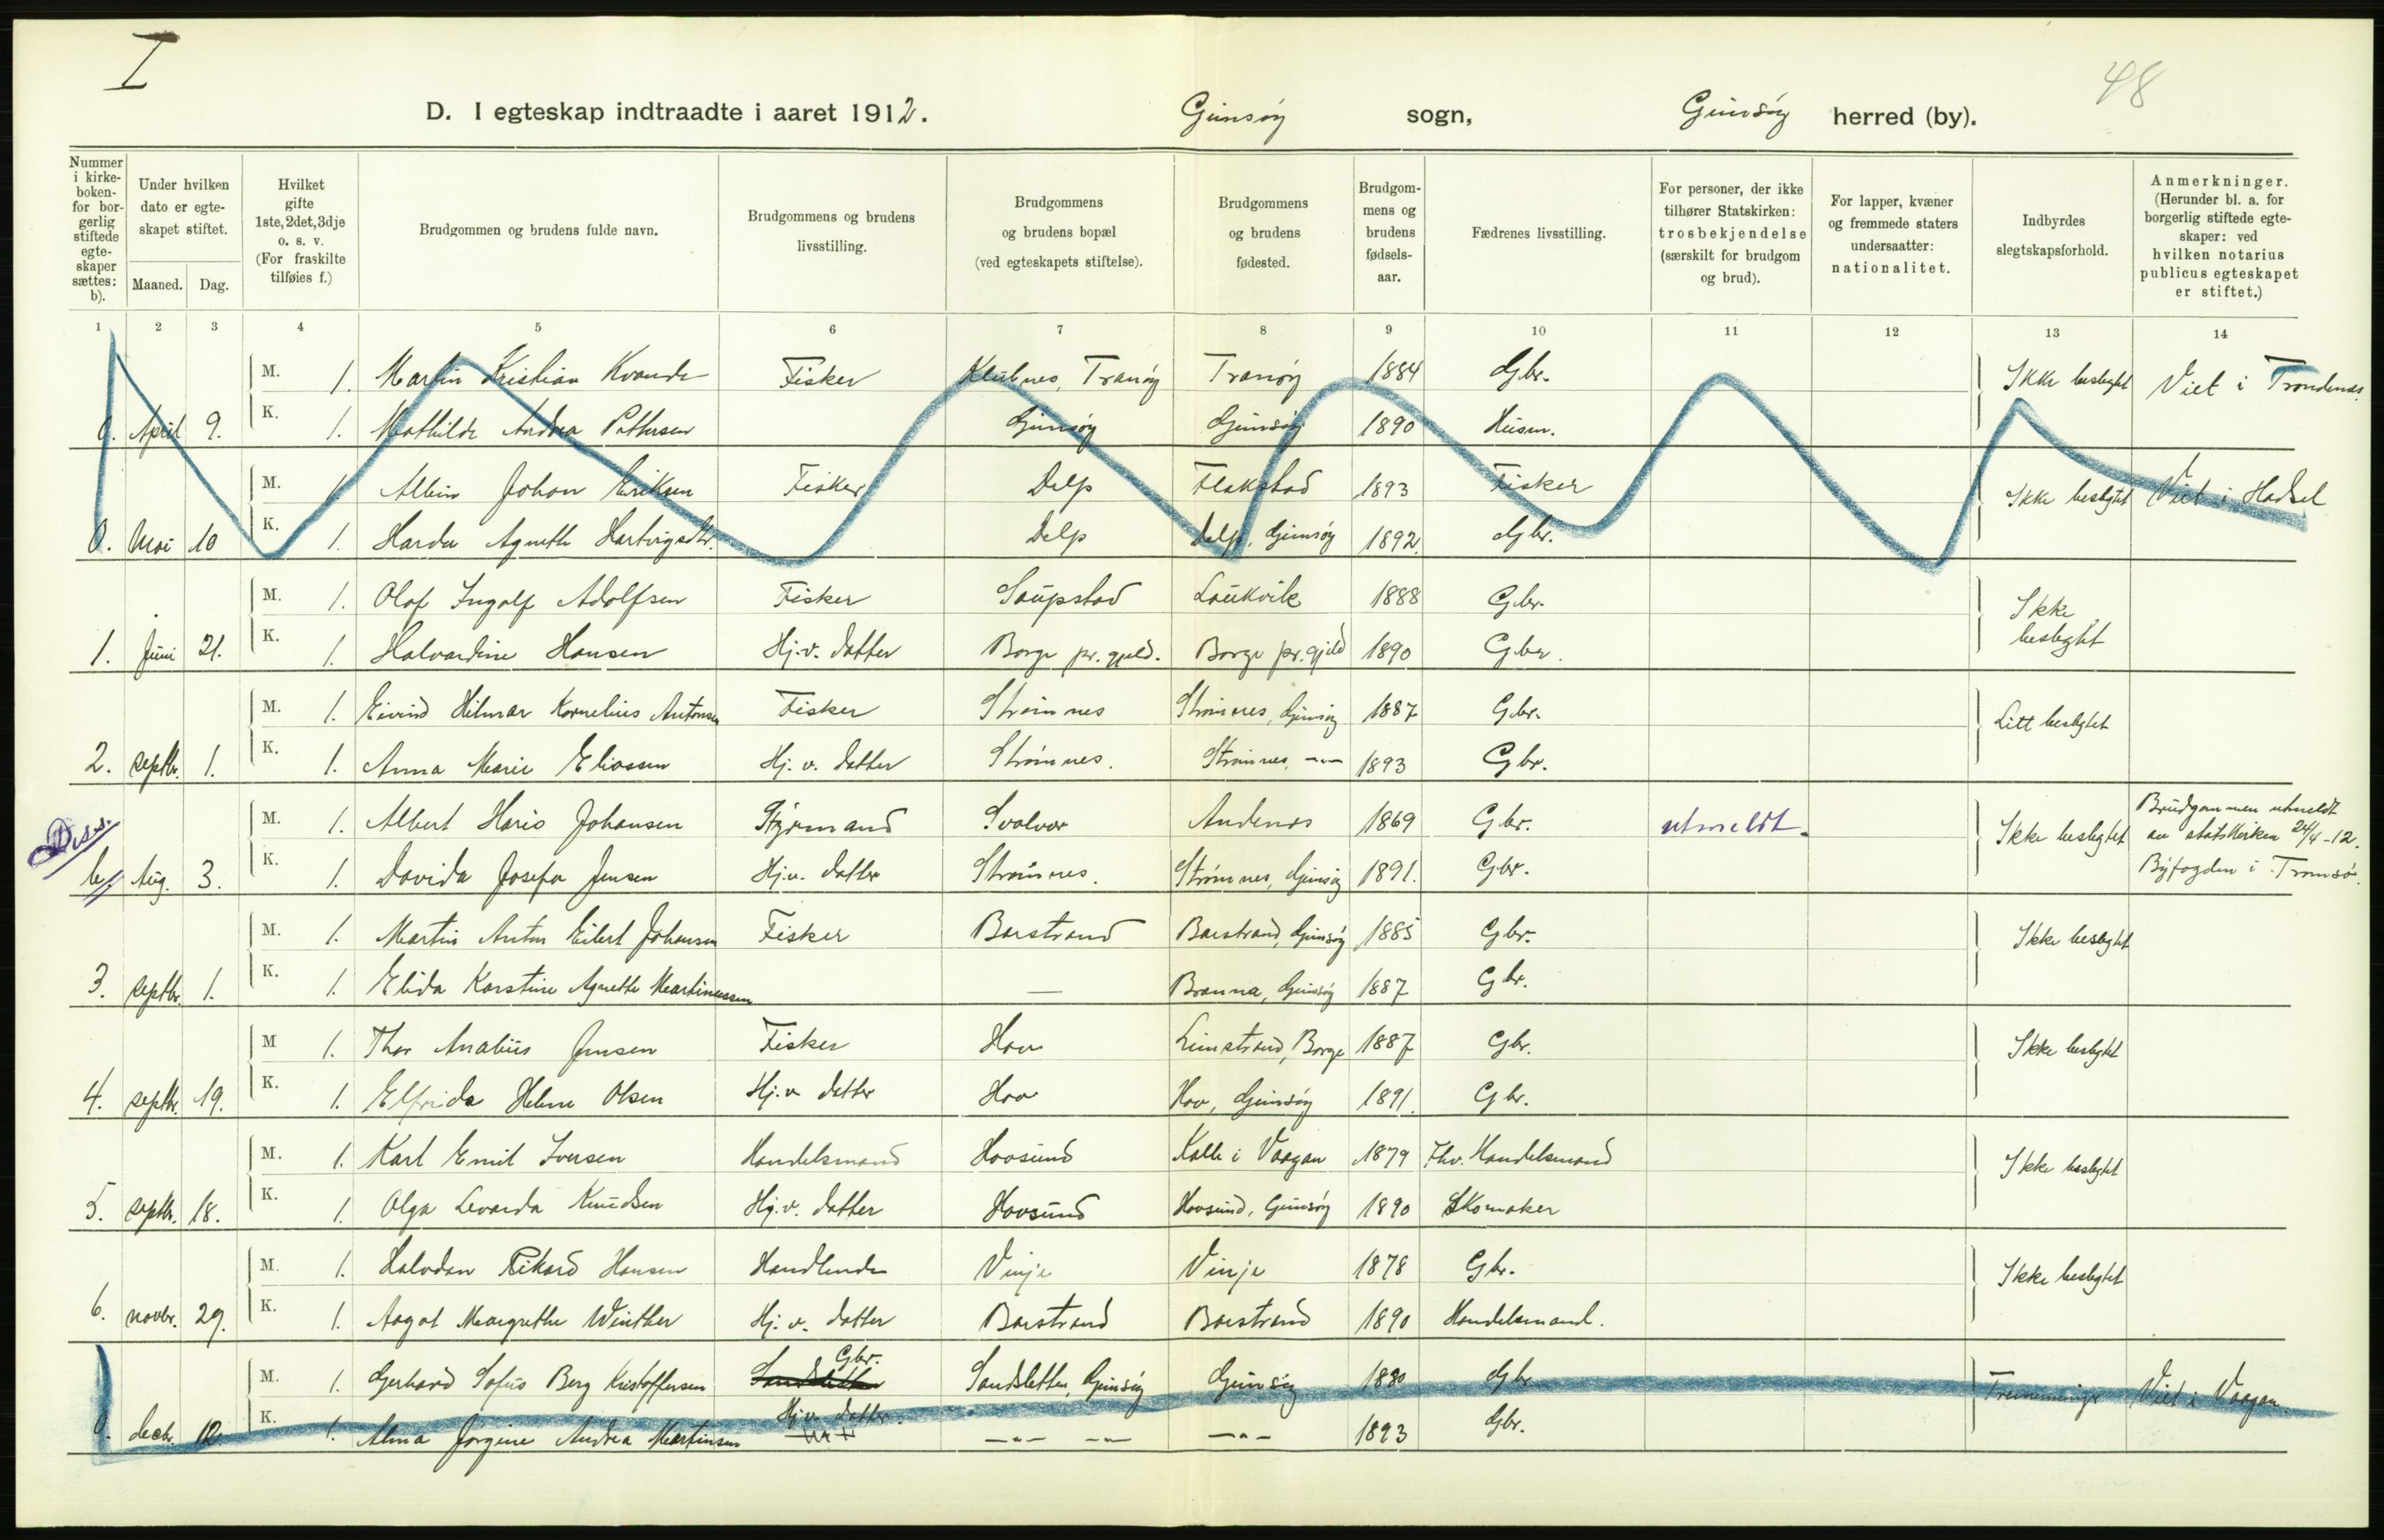 I
48
D. I egteskap indtraadte i aaret 1912. Gimsøy sogn, Gimsøy herred (by).
Nummer i kirkeboken- for borgerlig stiftede egteskaper sættes: b).
Under hvilken dato er egteskapet stiftet.
Maaned. Dag.
Hvilket gifte 1ste, 2det, 3dje o. s. v. (For fraskilte tilføies f.)
Brudgommen og brudens fulde navn.
Brudgommens og brudens livsstilling.
Brudgommens og brudens bopæl (ved egteskapets stiftelse).
Brudgommens og brudens fødested.
Brudgommens og brudens fødselsaar.
Fædrenes livsstilling.
For personer, der ikke tilhører Statskirken: trosbekjendelse (særskilt for brudgom og brud).
For lapper, kvæner og fremmede staters undersaatter: nationalitet.
Indbyrdes slegtskapsforhold.
Anmerkninger. (Herunder bl. a. for borgerlig stiftede egteskaper: ved hvilken notarius publicus egteskapet er stiftet.)
1 2 3 4 5 6 7 8 9 10 11 12 13 14
M. 1. Martin Kristian Kvande Fisker Klubnes, Tranøy Tranøy 1884 Gbr. Ikke beslegtet Viet i Trondenes.
0. April 9. K. 1. Mathilde Andrea Pettersen Gimsøy Gimsøy 1890 Husm.
M. 1. Albin Johan Eriksen Fisker Delp Flakstad 1893 Fisker Ikke beslegtet Viet i Hadsel
0. Mai 10 K. 1. Harda Agnethe Hartvigsdtr. Delp Delp, Gimsøy 1892. Gbr.
M. 1. Olaf Ingolf Adolfsen Fisker Saupstad Laukvik 1888 Gbr. Ikke beslegtet
1. Juni 21. K. 1. Halvardine Hansen Hj.v. datter Borge pr.gjeld. Borge pr.gjeld 1890 Gbr.
M. 1. Eivind Hilmar Kornelius Antonsen Fisker Strømnes Strømnes, Gimsøy 1887 Gbr. Litt beslegtet
2. septbr. 1. K. 1. Anna Marie Eliassen Hj. v. datter Strømnes. Strømnes, -"- 1893 Gbr.
Diss.
M. 1. Albert Haris Johansen Styrmand Svolvær Andenes 1869 Gbr. utmeldt. Ikke beslegtet Brudgommen utmeldt
av statskirken 24/4-12.
b/. Aug. 3. K. 1. Davida Josefa Jensen Hj.v. datter Strømnes. Strømnes, Gimsøy 1891. Gbr. Byfogden i Tromsø.
M. 1. Martin Anton Eilert Johansen Fisker Barstrand Barstrand, Gimsøy 1885 Gbr. Ikke beslegtet
3. septbr. 1. K. 1. Elida Karstine Agnethe Martinussen — Brenna, Gimsøy 1887 Gbr.
M 1. Thor Analius Jensen Fisker Hov Limstrand, Borge 1887 Gbr. Ikke beslegtet
4. septbr. 19. K. 1. Elfrida Helene Olsen Hj.v datter Hov Hov, Gimsøy 1891. Gbr.
M. 1. Karl Emil Iversen Handelsmand Hovsund Kalle i Vaagan 1879 Fhv. Handelsmand Ikke beslegtet
5. septbr. 18. K. 1. Olga Levarda Knudsen Hj.v. datter Hovsund Hovsund, Gimsøy 1890 Skomaker
M. 1. Halvdan Rikard Hansen Handlende Vinje Vinje 1878 Gbr. Ikke beslegtet
6. novbr. 29. K. 1. Aagot Margrethe Winther Hj. v. datter Barstrand Barstrand 1890 Handelsmand.
M. 1. Gerhard Sofus Berg Kristoffersen Gbr. Sandsletten, Gimsøy Gimsøy 1880 Gbr. Tremenninge Viet i Vaagan.
0. decbr. 12. K. 1. Alma Jørgine Andrea Martinsen Hj.v. datter. -"- -"- -"- 1893 Gbr.